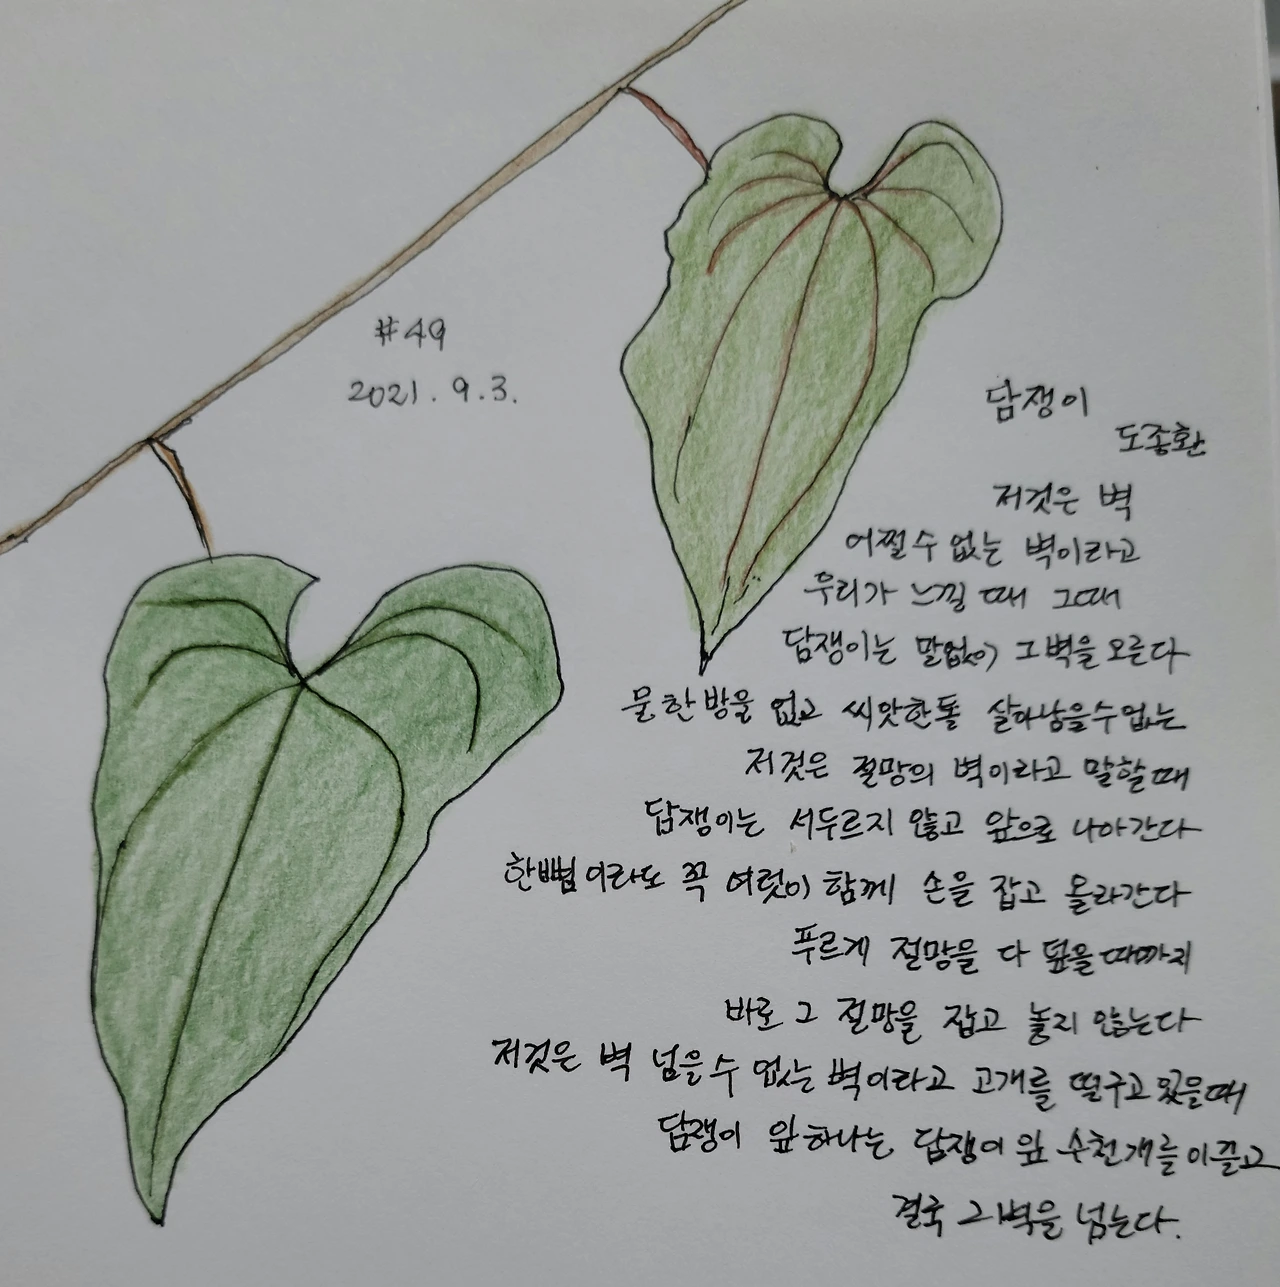 #49
2021. 9. 3.
담쟁이
도종환
저것은 벽
어쩔 수 없는 벽이라고
우리가 느낄 때 그때
담쟁이는 말없이 그 벽을 오른다
물 한 방울 없고 씨앗 한 톨 살아남을 수 없는
저것은 절망의 벽이라고 말할 때
담쟁이는 서두르지 않고 앞으로 나아간다
한 뼘이라도 꼭 여럿이 함께 손을 잡고 올라간다
푸르게 절망을 다 덮을 때까지
바로 그 절망을 잡고 놓지 않는다
저것은 벽 넘을 수 없는 벽이라고 고개를 떨구고 있을 때
담쟁이 잎 하나는 담쟁이 잎 수천 개를 이끌고
결국 그 벽을 넘는다.